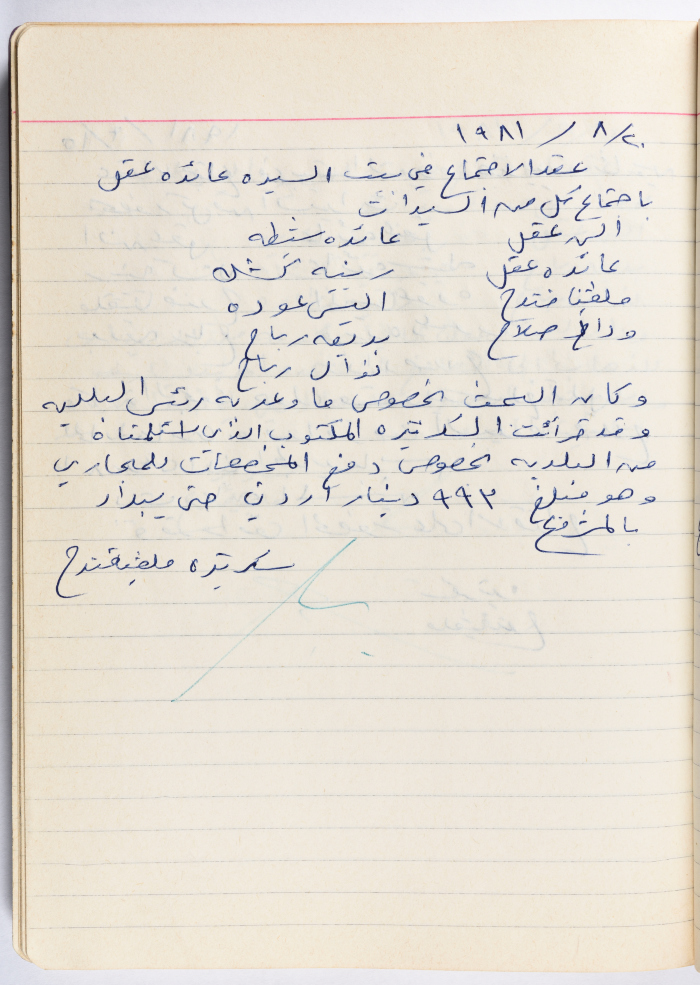 ١٩٨١ / ٨/٢٠
عقد الاجتماع في بيت السيده عائده عقل
باجتماع كل من السيدات
الن عقل عائده شطه
عائده عقل رينه
ملفينا قندح اليس عوده
وداع صلاح بديعه رباح
نوال رباح
وكان البحث بخصوص ما وعد به رئيس البلديه
وقد قرأت السكرتيره المكتوب الذي استلمناه
من البلديه بخصوص دفع المخصصات للمجاري
وهو مبلغ ٩٩٣ دينار اردني حتى يبدأ
بالمشروع
سكرتيره ملفينا قندح